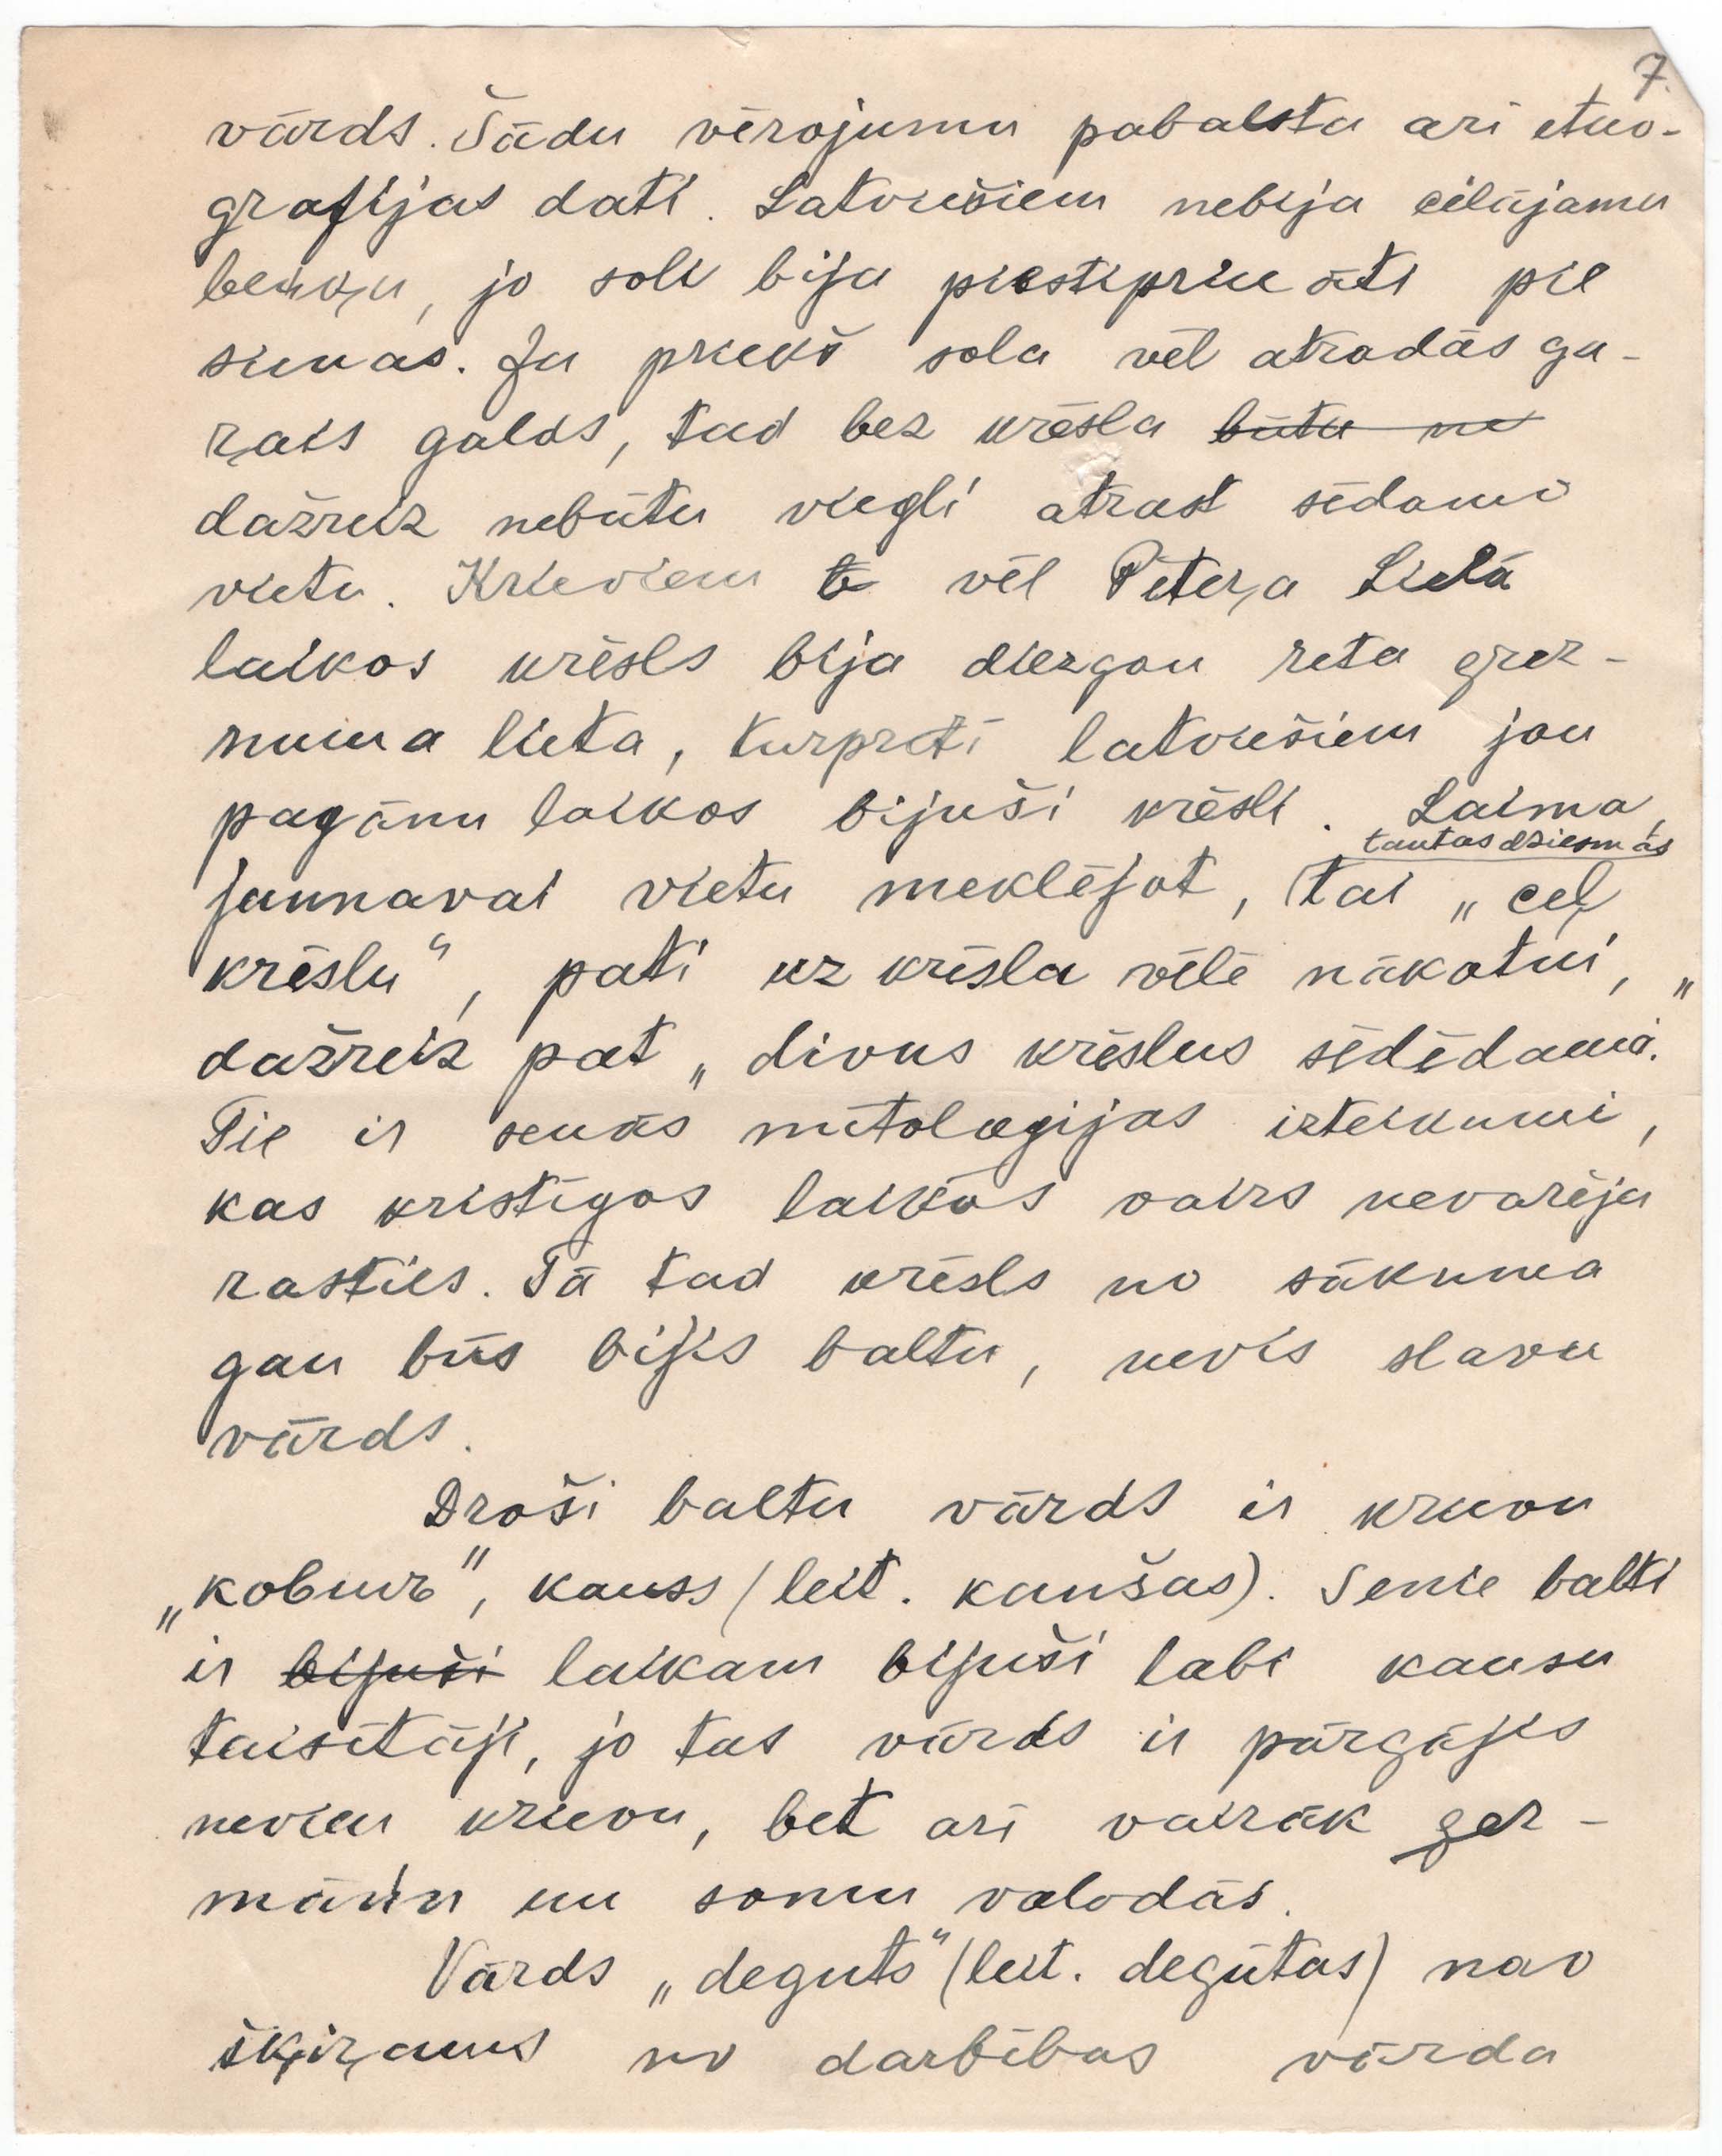 7.
vārds. Šādu vērojumu pabalsta arī etno-
grafijas dati. Latviešiem nebija cilājamu
beņķu, jo soli bija piestiprināti pie
sienas. Ja priekš sola vēl atradās ga-
ŗais galds, tad bez krēsla būtu ne
dažreiz nebūtu viegli atrast sēdamo
vietu. Krieviem te vēl Pēteŗa Lielā
laikos krēsls bija diezgan reta grez-
numa lieta, turpretī latviešiem jau
pagānu laikos bijuši krēsli. Laima,
tautas dziesmās
jaunavai vietu meklējot, tai „ceļ
krēslu“, pati uz krēsla vēlē nākotni, „
dažreiz pat „divus krēslus sēdēdama.
Tie ir senās mītoloģijas izteikumi,
kas kristīgos laikos vairs nevarēja
rasties. Tā tad krēsls no sākuma
gan būs bijis baltu, nevis slavu
vārds.
Droši baltu vārds ir krievu
„ковшъ“, kauss (leit. kaušas). Senie balti
ir bijuši laikam bijuši labi kausu
taisītāji, jo tas vārds ir pārgājis
nevien krievu, bet arī vairāk ģer-
māņu un somu valodās.
Vārds „deguts“ (leit. degūtas) nav
šķiŗams no darbības vārda